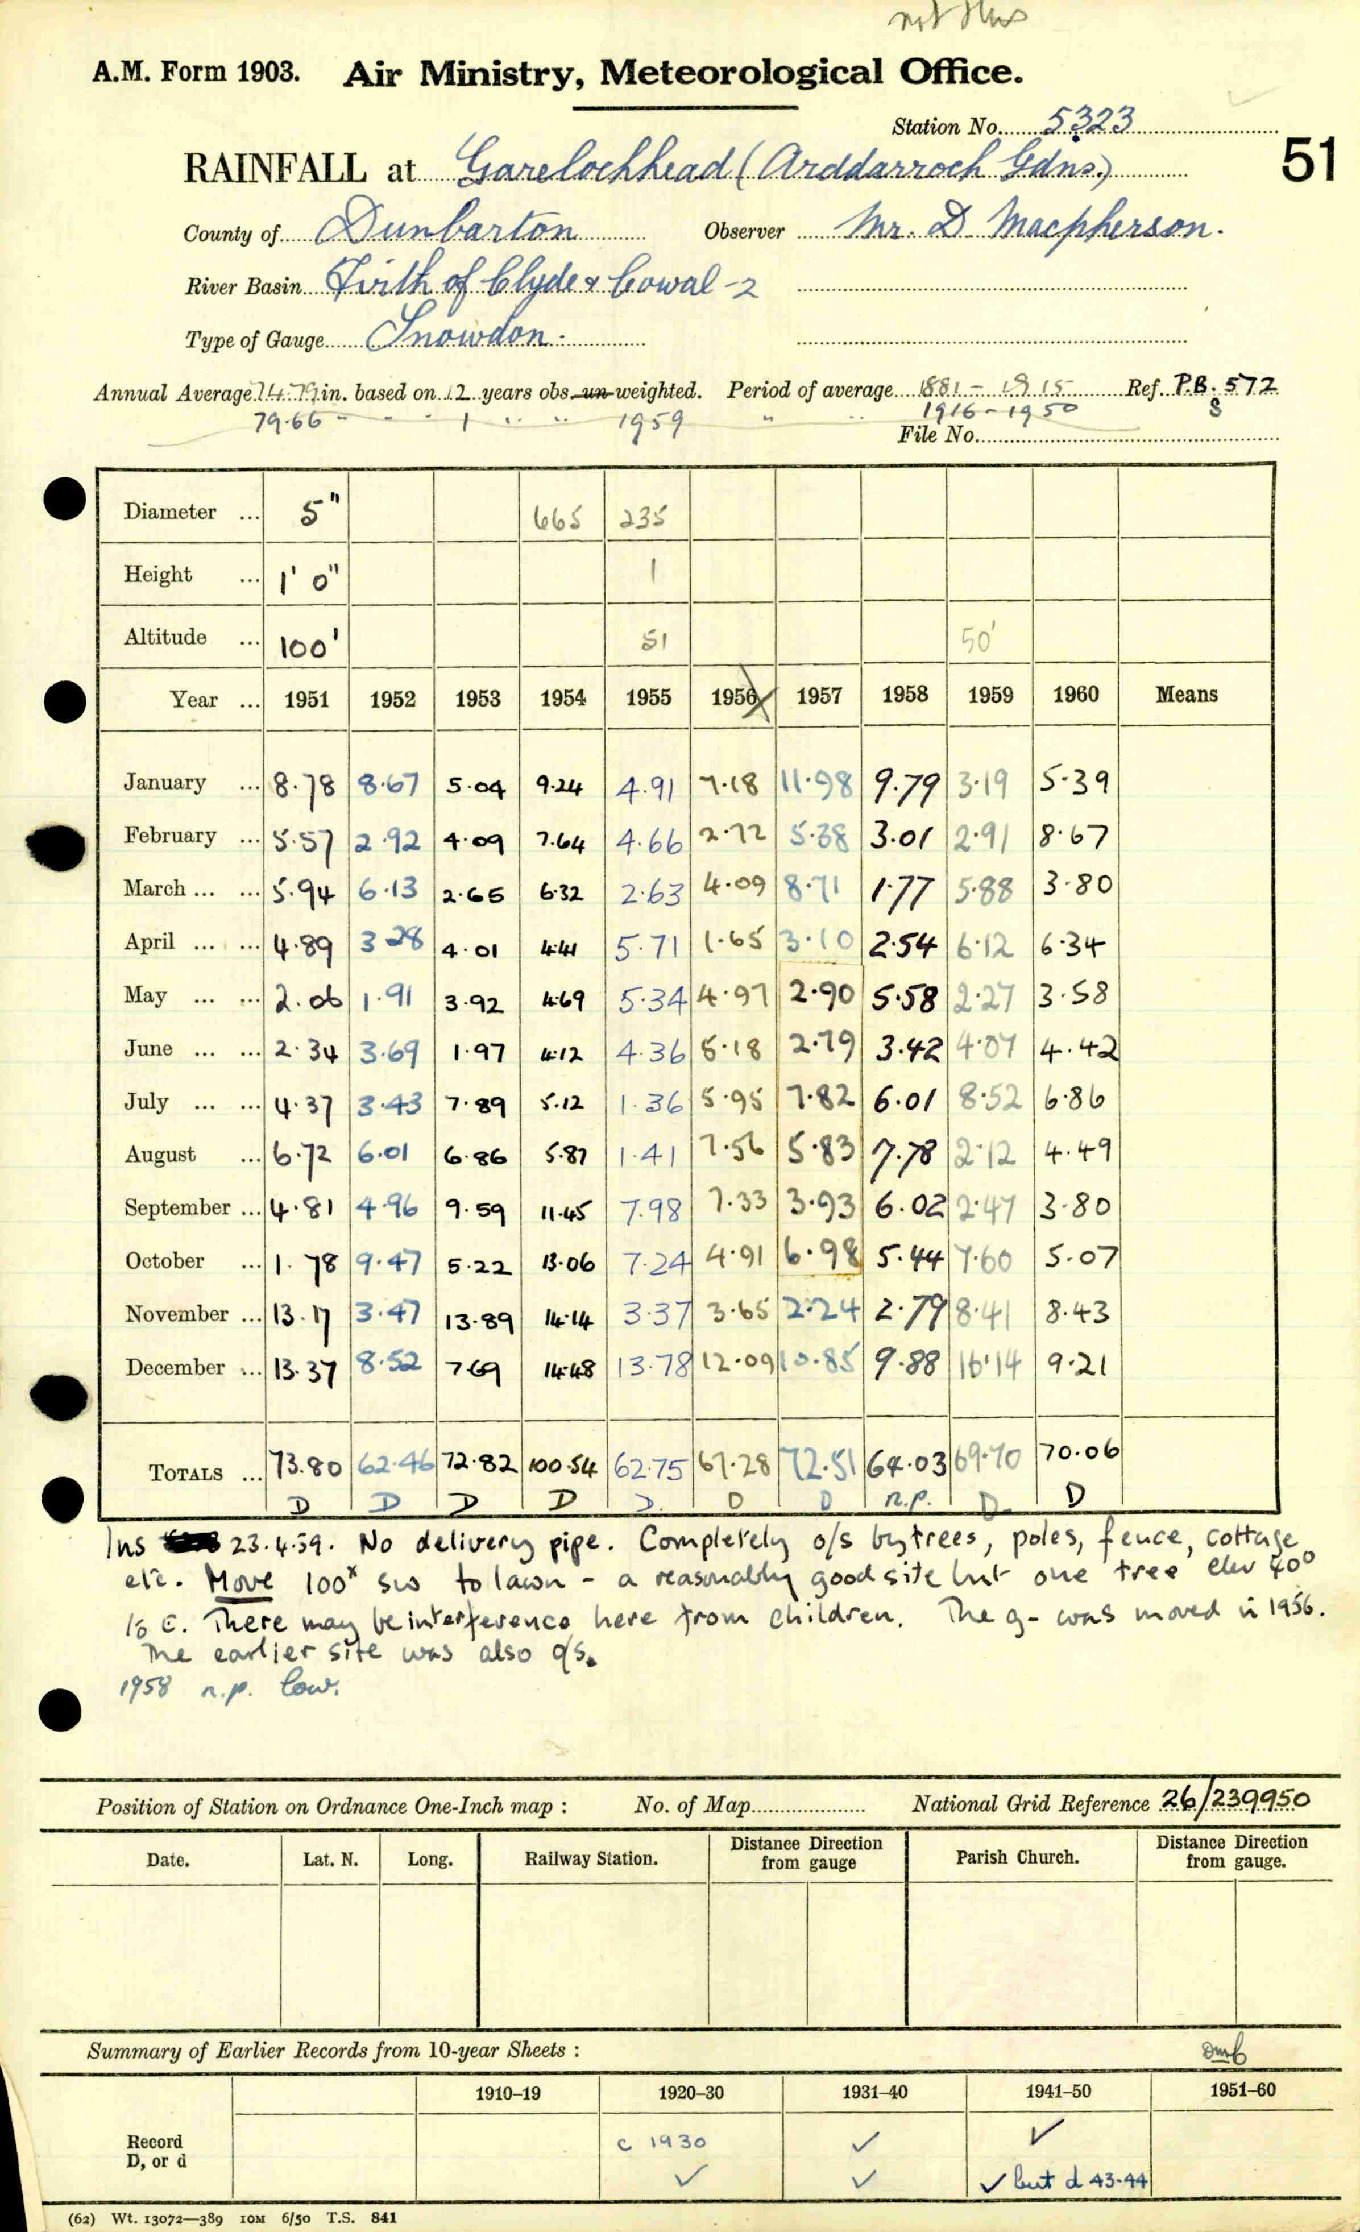 not this
A.M. Form 1903. Air Ministry, Meteorological Office.
Station No. 5323
51
RAINFALL at Garelochhead (Arddarroch Gdns.)
County of Dunbarton Observer Mr. D Macpherson.
River Basin Firth of Clyde & Cowal - 2
Type of Gauge Snowdon.
Annual Average 74.79 in. based on 12 years obs. un-weighted. Period of average 1881 - 1915 Ref. P.B. 572
79.66 " " " 1 " " 1959 " " 1916 - 1950 8
File No.
Diameter ... 5" 665 235
Height ... 1' 0" 1
Altitude ... 100' 51 50'
Year ... 1951 1952 1953 1954 1955 1956 X 1957 1958 1959 1960 Means
January ... 8.78 8.67 5.04 9.24 4.91 7.18 11.98 9.79 3.19 5.39
February ... 5.57 2.92 4.09 7.64 4.66 2.72 5.38 3.01 2.91 8.67
March ... ... 5.94 6.13 2.65 6.32 2.63 4.09 8.71 1.77 5.88 3.80
April ... ... 4.89 3.28 4.01 4.41 5.71 1.65 3.10 2.54 6.12 6.34
May ... ... 2.06 1.91 3.92 4.69 5.34 4.97 2.90 5.58 2.27 3.58
June ... ... 2.34 3.69 1.97 4.12 4.36 5.18 2.79 3.42 4.07 4.42
July ... ... 4.37 3.43 7.89 5.12 1.36 5.95 7.82 6.01 8.52 6.86
August ... 6.72 6.01 6.86 5.87 1.41 7.56 5.83 7.78 2.12 4.49
September ... 4.81 4.96 9.59 11.45 7.98 7.33 3.93 6.02 2.47 3.80
October ... 1.78 9.47 5.22 13.06 7.24 4.91 6.98 5.44 7.60 5.07
November ... 13.17 3.47 13.89 14.14 3.37 3.65 2.24 2.79 8.41 8.43
December ... 13.37 8.52 7.69 14.48 13.78 12.09 10.85 9.88 16.14 9.21
TOTALS ... 73.80 62.46 72.82 100.54 62.75 67.28 72.51 64.03 69.70 70.06
D D D D D. D D n.p. D. D
Ins 23.4.59. No delivery pipe. Completely o/s by trees, poles, fence, cottage
etc. Move 100x SW to lawn - a reasonably good site but one tree elev 40°
to E. There may be interference here from children. The g- was moved in 1956.
The earlier site was also o/s.
1958 n.p. low.
Position of Station on Ordnance One-Inch map : No. of Map National Grid Reference 26/239950
Date. Lat. N. Long. Railway Station. Distance Direction from gauge Parish Church. Distance Direction from gauge.
Summary of Earlier Records from 10-year Sheets :
1910–19 1920–30 1931–40 1941–50 1951–60
Record c 1930 ✓ ✓
D, or d ✓ ✓ ✓ but d 43-44
(62) Wt. 13072—389 10M 6/50 T.S. 841